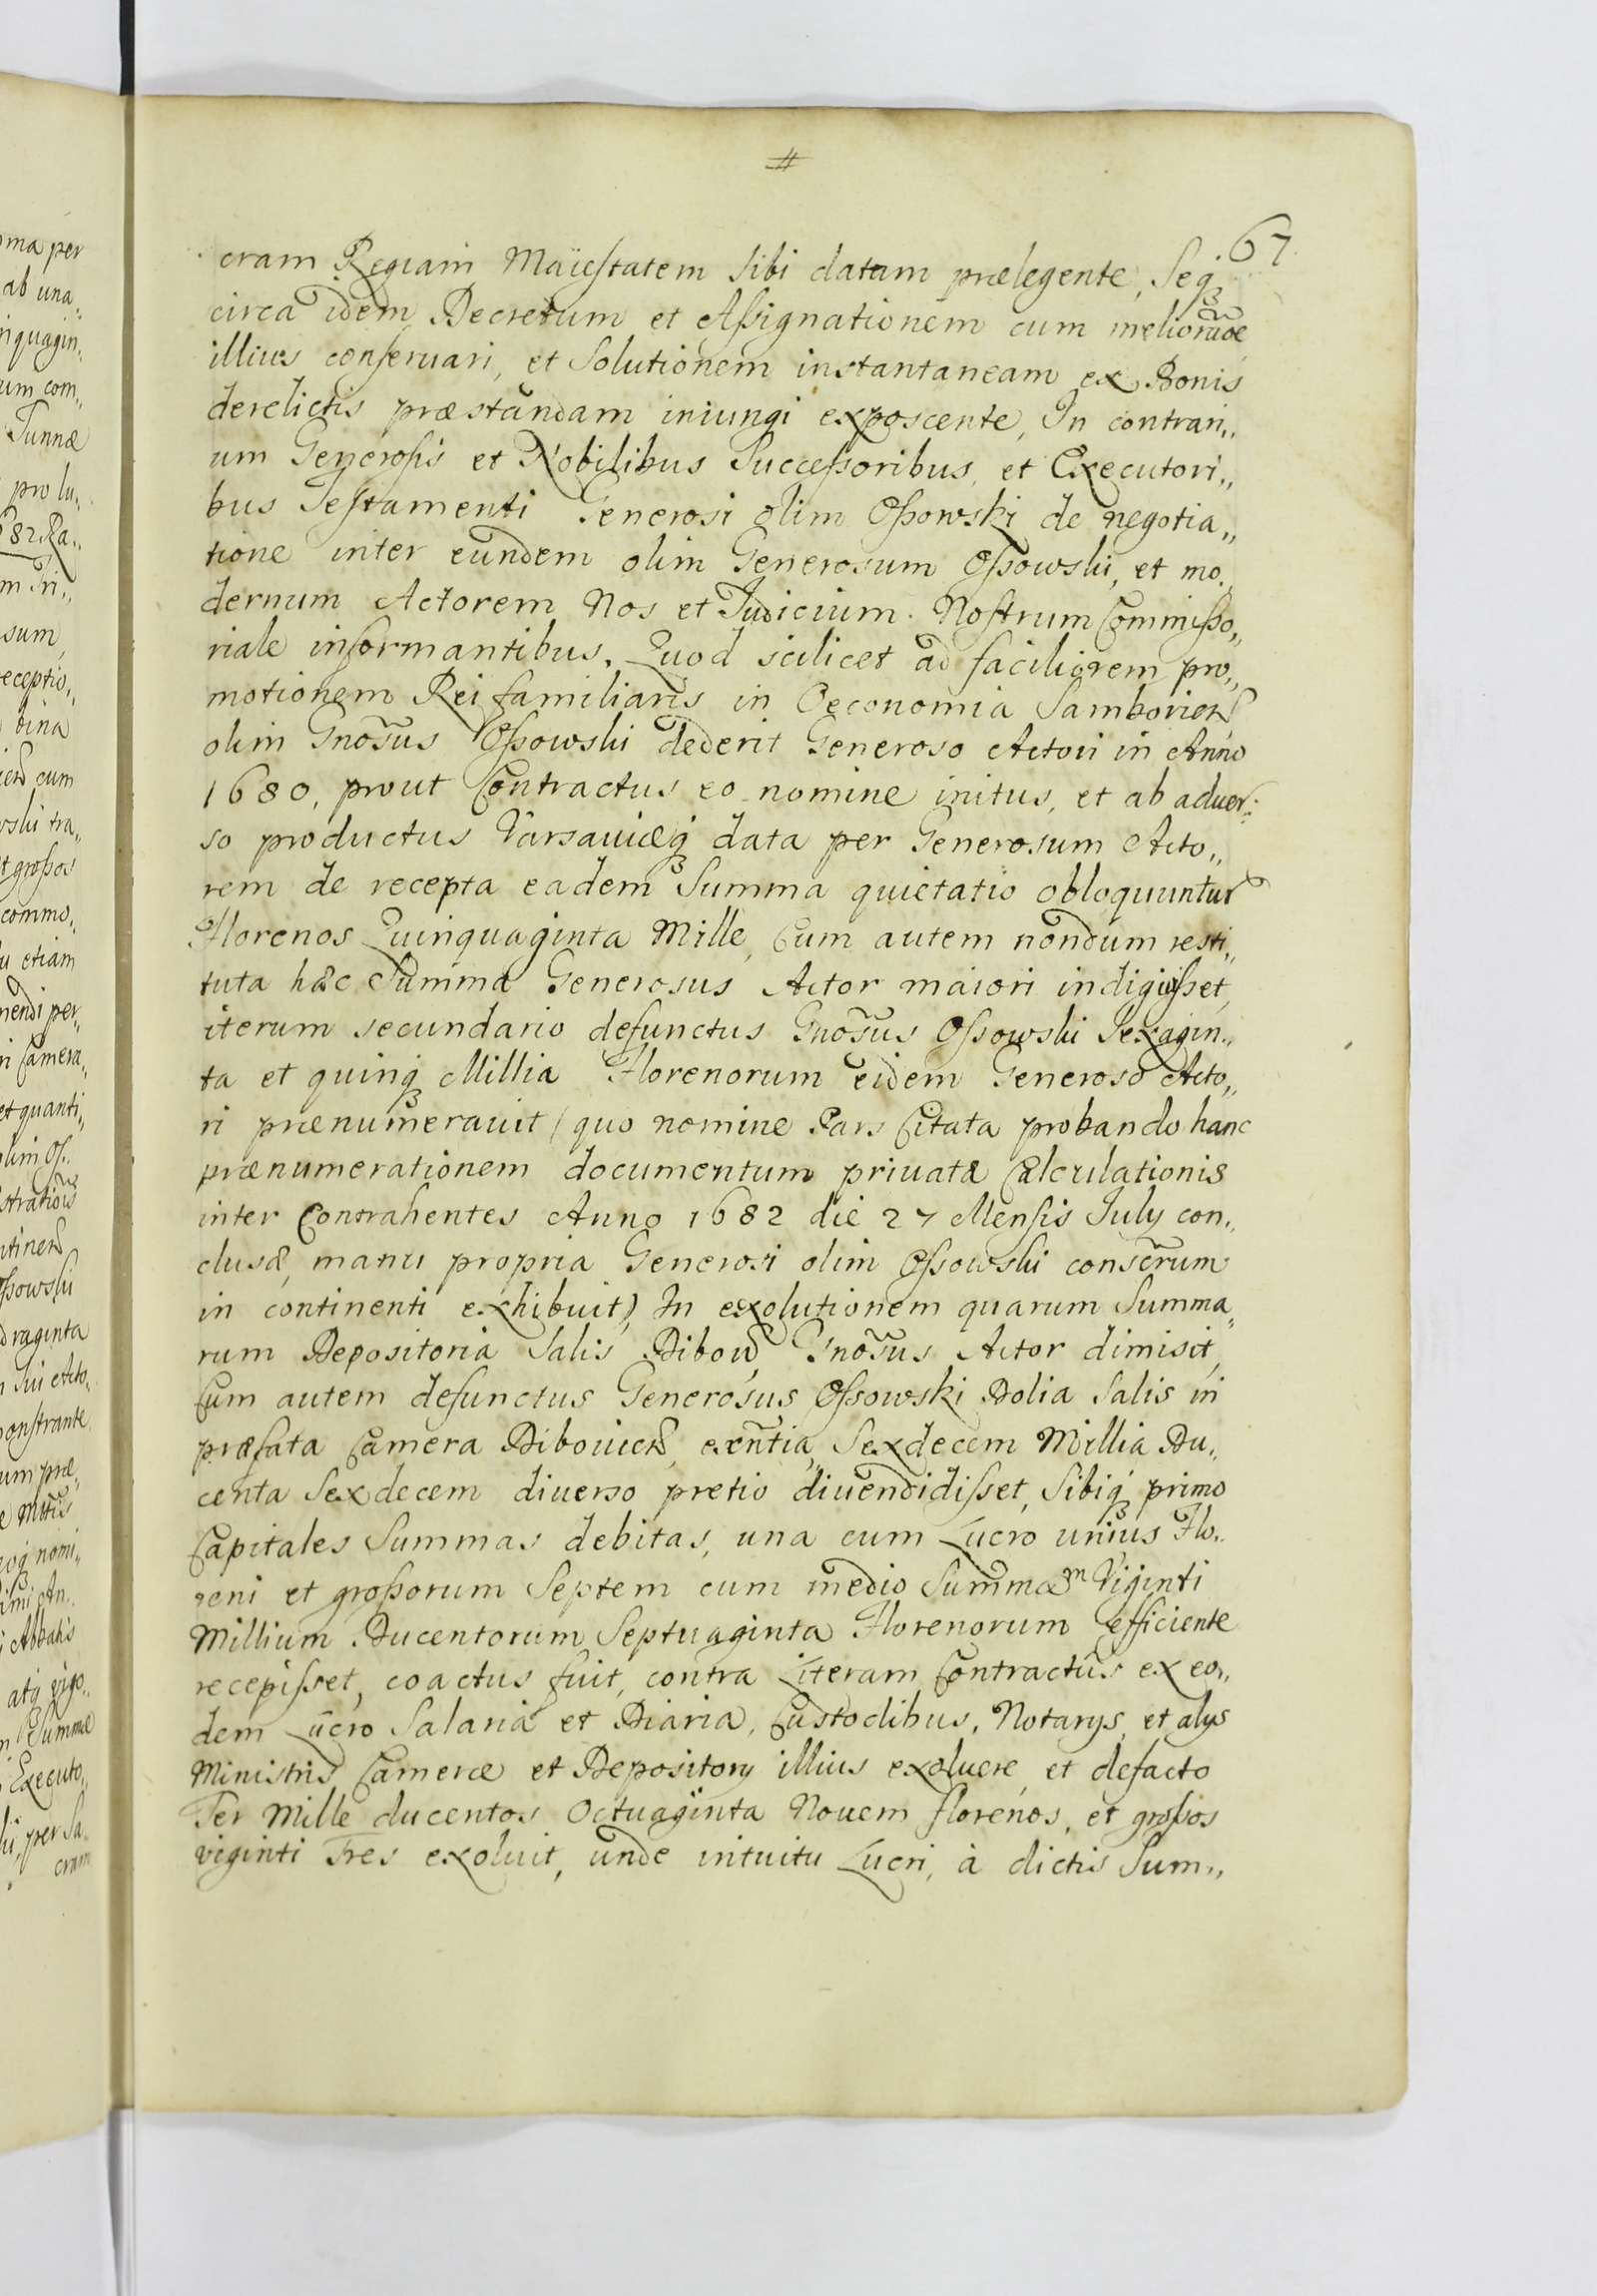 #
67
cram Regiam Maiestatem sibi datam prælegente, Seq₃
circa idem Decretum et Assignationem cum melioraõe
illius conseruari, et Solutionem instantaneam ex Bonis
derelictis præstandam iniungi exposcente, In contrari„
um Generosis et Nobilibus Successoribus, et Executori„
bus Testamenti Generosi olim Ossowski de negotia„
tione inter eundem olim Generosum Ossowski, et mo„
dernum Actorem Nos et Judicium Nostrum Commisso„
riale informantibus. Quod scilicet ad faciliorem pro„
motionem Rei familiaris in Oeconomia Samborien
olim Gnõsus Ossowski dederit Generoso Actori in Anno
1680, prout Contractus eo nomine initus, et ab aduer„
so productus Varsauiæq₃ data per Generosum Acto„
rem de recepta eadem Summa quietatio obloquuntur
Florenos Quinquaginta Mille, Cum autem nondum resti„
tuta hac Summa Generosus Actor maiori indiguisset,
iterum secundario defunctus Gnõsus Ossowski Sexagin„
ta et quinq₃ Millia Florenorum eidem Generoso Acto„
ri prænumerauit (quo nomine Pars Citata probando hanc
prænumerationem documentum priuatæ Calculationis
inter Contrahentes Anno 1682 die 27 Mensis July con„
clusæ, manu propria Generosi olim Ossowski conscr̃um
in continenti exhibuit) In exolutionem quarum Summa„
rum Depositoria Salis Dibow Gnõsus Actor dimisit,
Cum autem defunctus Generosus Ossowski Dolia Salis in
præfata Camera Dibouien, exñtia, Sexdecem Millia Du„
centa Sexdecem diuerso pretio diuendidisset, Sibiq₃ primo
Capitales Summas debitas, una cum Lucro unius Flo„
reni et grossorum Septem cum medio Summam Viginti
Millium Ducentorum Septuaginta Florenorum efficiente
recepisset, coactus fuit, contra Literam Contractus ex eo„
dem Lucro Salaria et Diaria, Custodibus, Notarys, et alys
Ministris Cameræ et Depository illius exoluere, et defacto
Ter Mille ducentos Octuaginta Nouem florenos, et grossos
viginti Tres exoluit, unde intuitu Lucri, à dictis Sum„